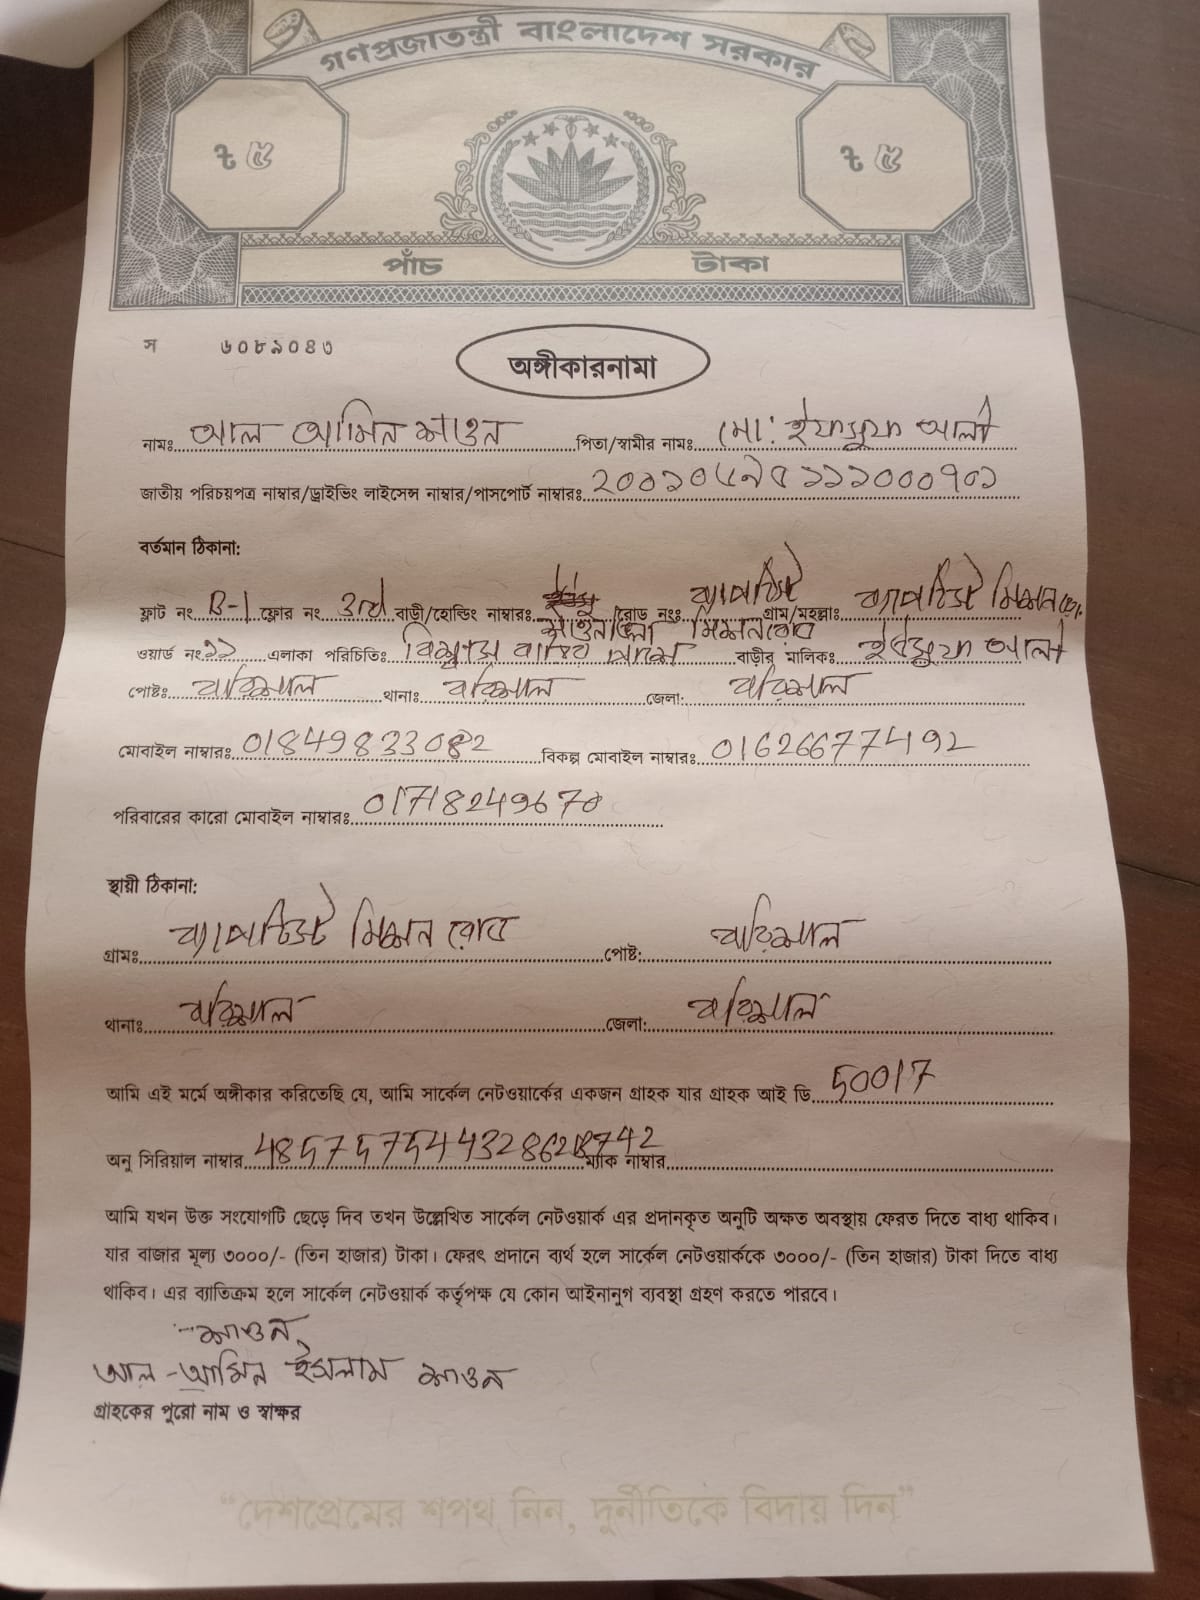 গণপ্রজাতন্ত্রী বাংলাদেশ সরকার
৳ ৫ ৳ ৫
পাঁচ টাকা
স ৬০৮৯০৪৩
অঙ্গীকারনামা
নামঃ আল আমিন শাওন পিতা/স্বামীর নামঃ মো: ইউসুফ আলী
জাতীয় পরিচয়পত্র নাম্বার/ড্রাইভিং লাইসেন্স নাম্বার/পাসপোর্ট নাম্বারঃ
বর্তমান ঠিকানা:
ফ্লাট নং B-1 ফ্লোর নং 3rd বাড়ী/হোল্ডিং নাম্বারঃ রোড নংঃ ব্যাপটিস্ট মিশন রোড গ্রাম/মহল্লাঃ ব্যাপটিস্ট মিশন রোড
ওয়ার্ড নং ১১ এলাকা পরিচিতিঃ বিশ্বাস বাড়ির বাড়ীর মালিকঃ ইউসুফ আলী
পোষ্টঃ বরিশাল থানাঃ বরিশাল জেলা: বরিশাল
মোবাইল নাম্বারঃ 01849833082 বিকল্প মোবাইল নাম্বারঃ 01626677492
পরিবারের কারো মোবাইল নাম্বারঃ
স্থায়ী ঠিকানা:
গ্রামঃ ব্যাপটিস্ট মিশন রোড পোষ্ট: বরিশাল
থানাঃ বরিশাল জেলা: বরিশাল
আমি এই মর্মে অঙ্গীকার করিতেছি যে, আমি সার্কেল নেটওয়ার্কের একজন গ্রাহক যার গ্রাহক আই ডি 50017
অনু সিরিয়াল নাম্বার ম্যাক নাম্বার
আমি যখন উক্ত সংযোগটি ছেড়ে দিব তখন উল্লেখিত সার্কেল নেটওয়ার্ক এর প্রদানকৃত অনুটি অক্ষত অবস্থায় ফেরত দিতে বাধ্য থাকিব।
যার বাজার মূল্য ৩০০০/- (তিন হাজার) টাকা। ফেরৎ প্রদানে ব্যর্থ হলে সার্কেল নেটওয়ার্ককে ৩০০০/- (তিন হাজার) টাকা দিতে বাধ্য
থাকিব। এর ব্যাতিক্রম হলে সার্কেল নেটওয়ার্ক কর্তৃপক্ষ যে কোন আইনানুগ ব্যবস্থা গ্রহণ করতে পারবে।
শাওন
আল-আমিন ইসলাম শাওন
গ্রাহকের পুরো নাম ও স্বাক্ষর
“দেশপ্রেমের শপথ নিন, দুর্নীতিকে বিদায় দিন”